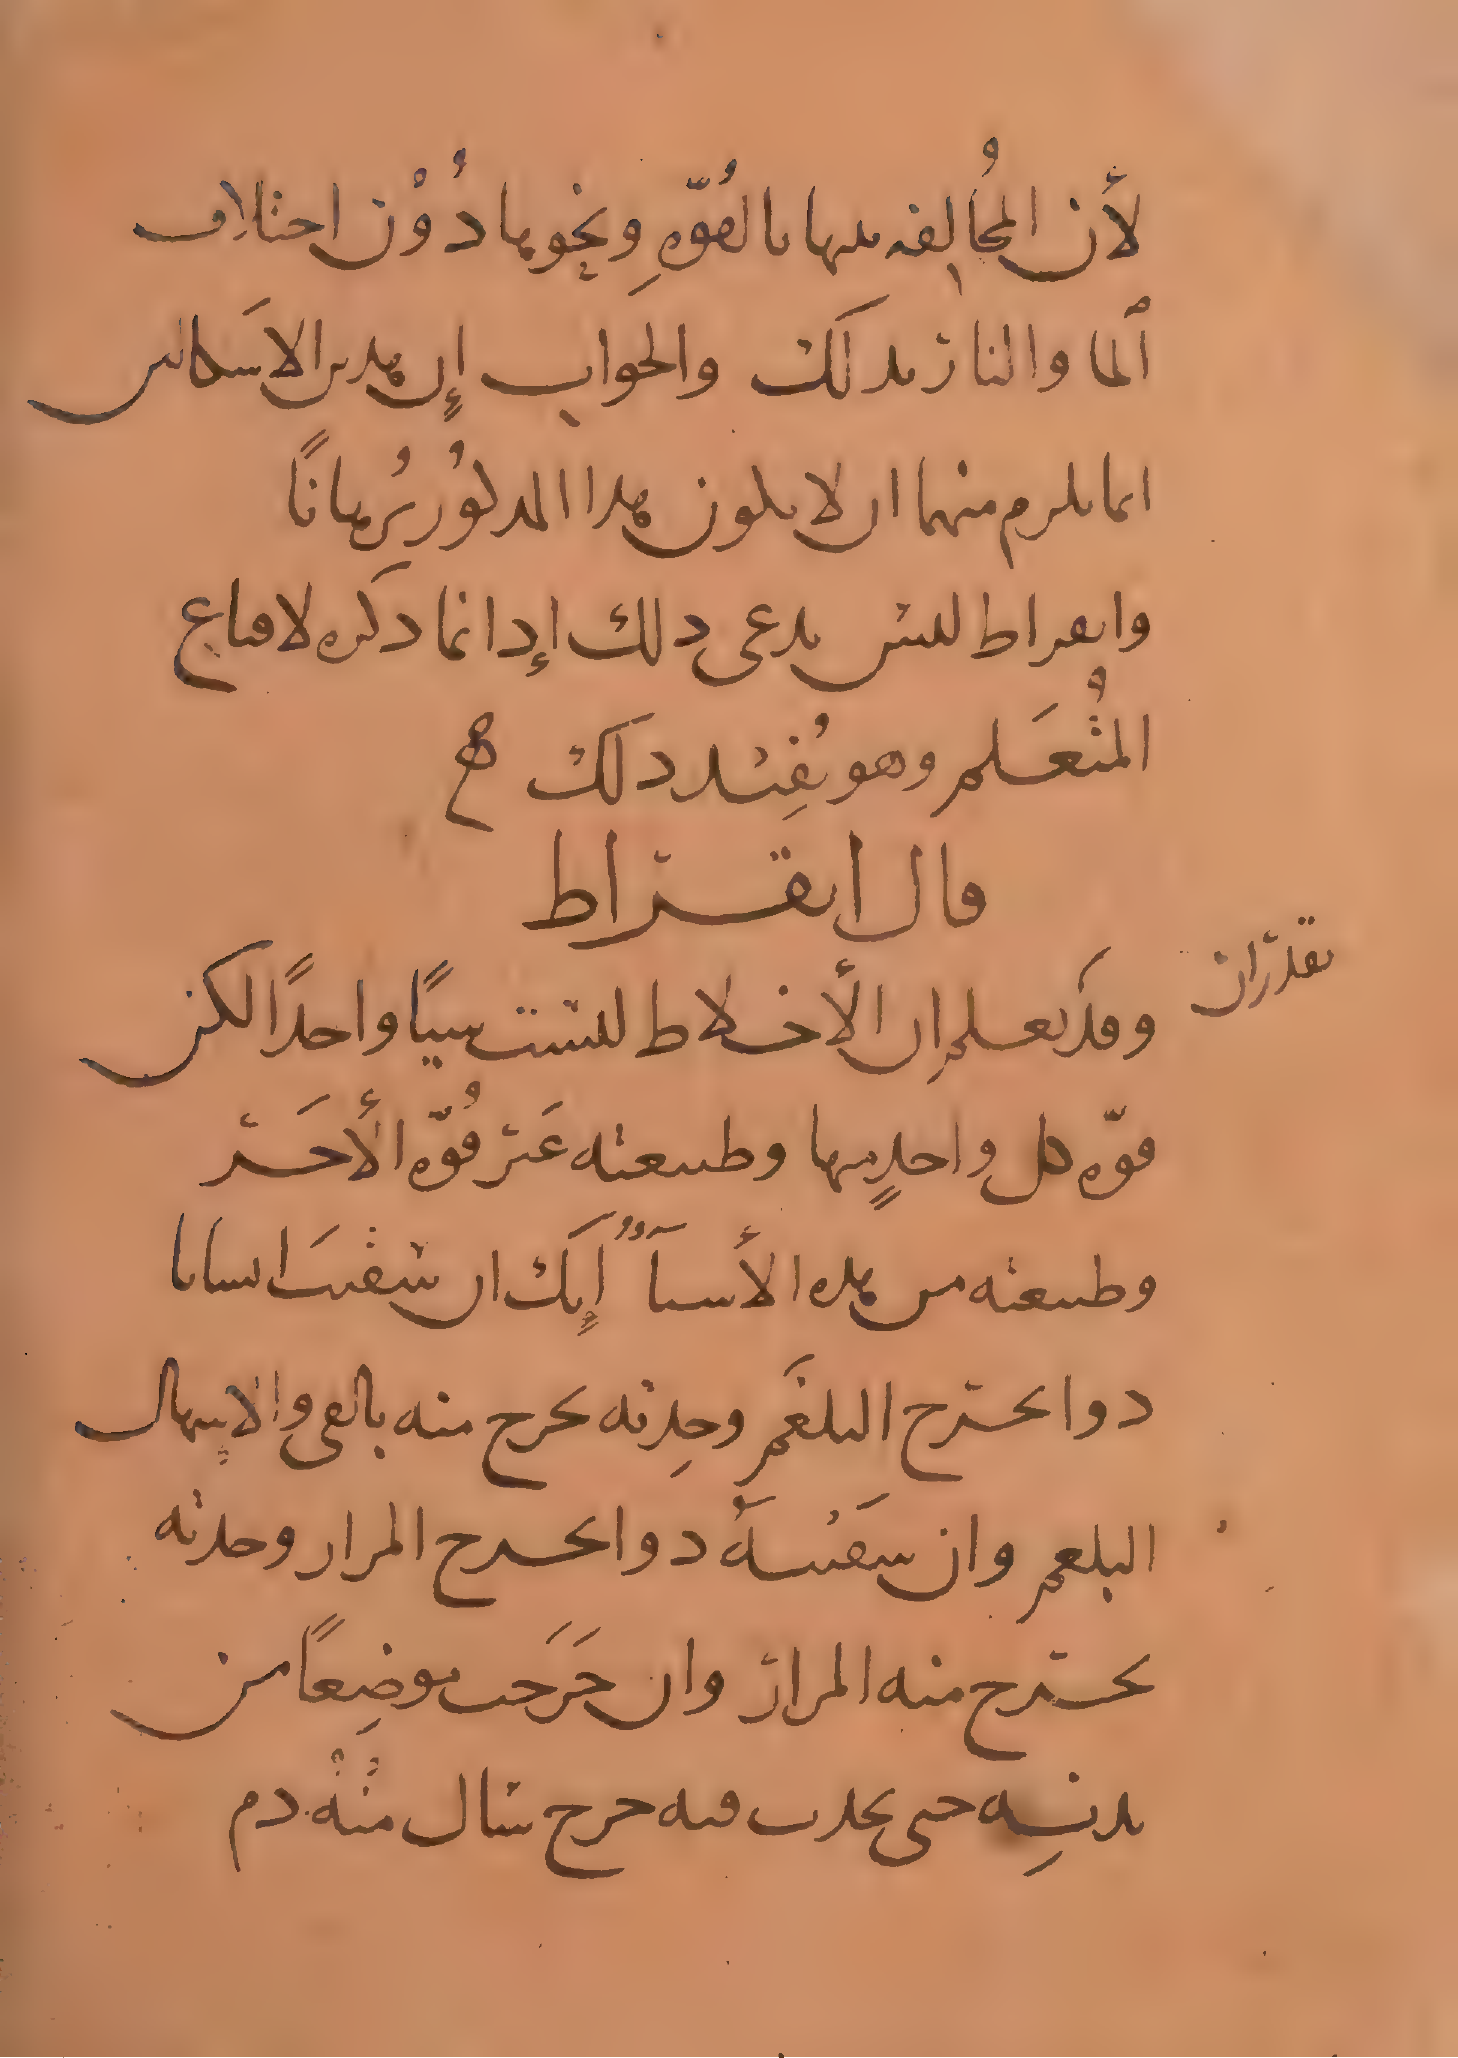 لأن المخالفه منها بالقُوّهِ ونحوها دُوْن اختلاف
ألما والنار بذلَك والجواب إن هذين الاشكالين
انما يلزم منهما ان لا يكون هذا المذكُور بُرهانًا
وابقراط ليس يدعى ذلك إذ انما ذكَره لاقناع
المُتعَلم وهو يُفِيد ذلَك
قال ابقراط
وقدَ تعلم ان الأخلاط ليست شيئًا واحدًا لكن
يقدر ان
قوّه كل واحدٍ منها وطبيعته غَير قُوّه الأخَر
وطبيعته من هذه الأشيآ إنَك ان سقيتَ انسانا
دوا يخرج البلغَم وجدِته يخرج منه بالقي والاسهال
البلغم وان سقَيتهُ دوا يخرج المرار وجدته
يخرج منه المرار وان جَرَحت موضِعًا من
بدنِه حتى يحدث فيه جرح سال مِنْهُ دم